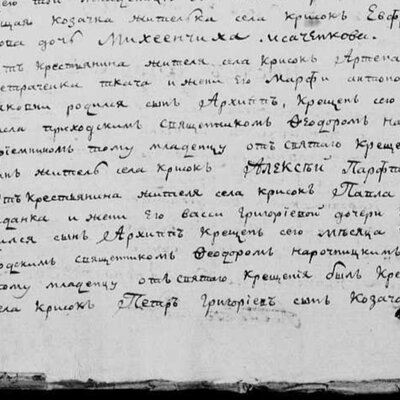 его
щая козачка жителька села крисокъ Евф
ова дочь Михеенчиха Исаченкова.
отъ крестьянина жителя села крисокъ Артема
ткача и жени его Марфи антоно
родился сынъ Архиппъ, крещенъ сего
приходскимъ священникомъ Феодоромъ На
ріемникомъ тому младенцу отъ святаго креще
житель села крисокъ Алексѣй Парфи
отъ крестьянина жителя села крисокъ Павла
данка и жени его Васси Григоріевой дочери
ился сынъ Архиппъ крещенъ сего мѣсяца
одскимъ священникомъ Феодоромъ Нарочницкимъ
ому младенцу отъ святаго крещенія былъ кре
ела крисокъ Петаръ Григоріевъ сынъ козач